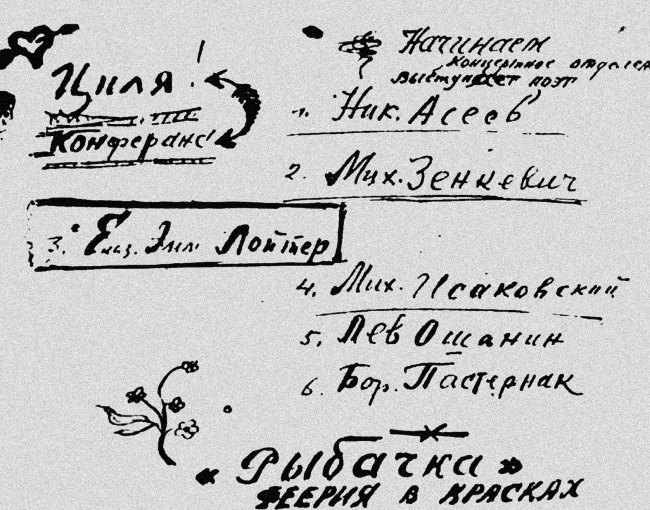 Циля!
Конферанс!
Начинаем
концертное отделен
Выступает поэт
1. Ник. Асеев
2. Мих. Зенкевич
3. Елиз. Эмм. Лойтер
4. Мих. Исаковский
5. Лев Ошанин
6. Бор. Пастернак
« Рыбачка »
ФЕЕРИЯ В КРАСКАХ